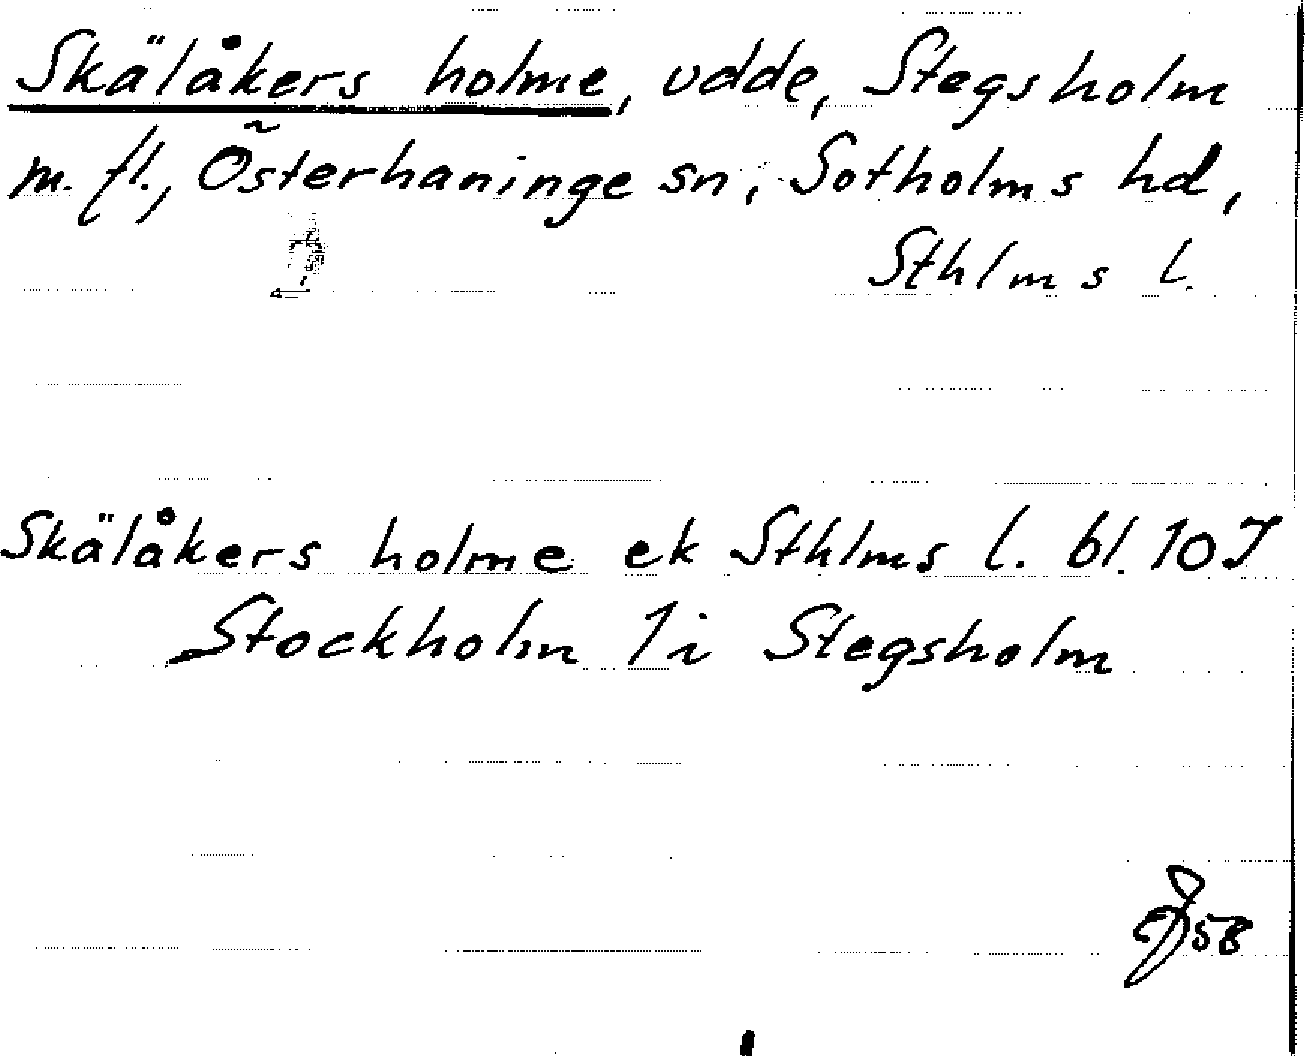 Skälåkers holme, udde, Stegsholm
m. fl., Österhaninge sn, Sotholms hd,
Sthlms l.
Skälåkers holme ek Sthlms l. bl. 10 I
Stockholm 1i Stegsholm
58